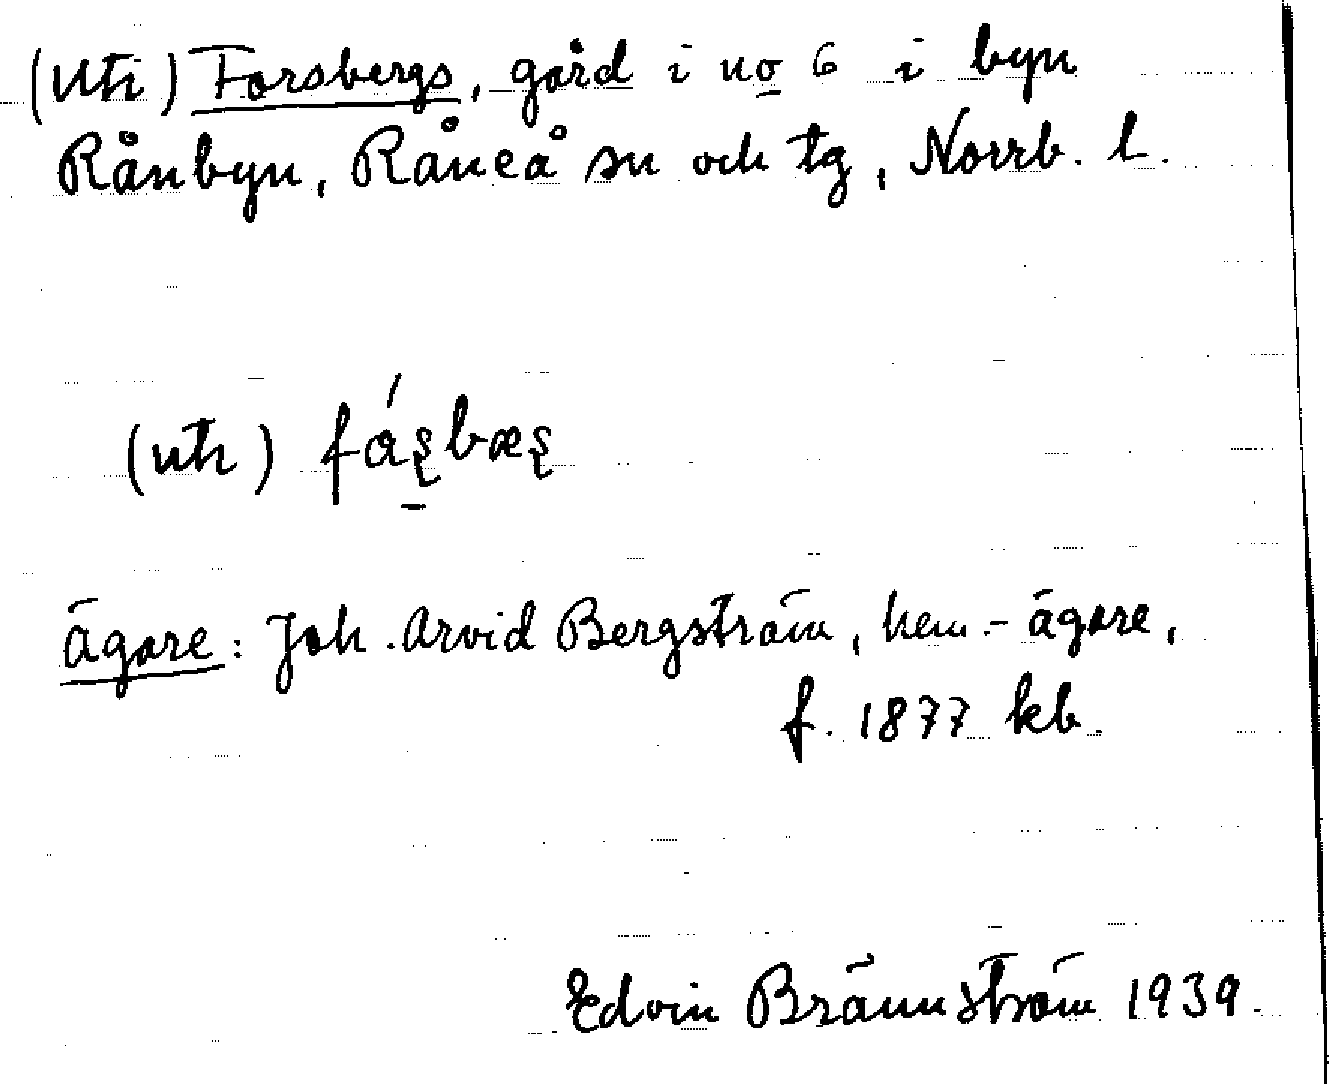 (uti) Forsbergs, gård i no 6 i byn
Rånbyn, Råneå sn och tg, Norrb. l.
(uti) fáșbæș
ägare: Joh. Arvid Bergström, hem.-ägare,
f. 1877 kb.
Edvin Brännström 1939.